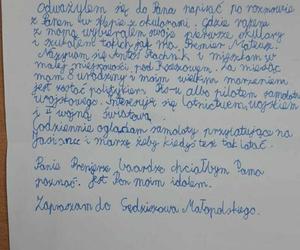 Odważyłem się do Pana napisać po rozmowie
z Panem w sklepie z okularami, gdzie razem
z mamą wybierałem swoje pierwsze okulary
i szukałem takich jak ma Premier Mateusz.
Nazywam się Antoś Stachnik i mieszkam w
małej miejscowości pod Krakowem. Za miesiąc
mam 8 urodziny i moim wielkim marzeniem
jest zostać politykiem Pis-u albo pilotem samolotu
wojskowego. Interesuję się lotnictwem, wojskiem
i II wojną światową.
Codziennie oglądam samoloty przylatujące na
Jasionkę i marzę żeby kiedyś też tak latać.
Panie Premierze baardzo chciałbym Pana
poznać. Jest Pan moim idolem.
Zapraszam do Sędziszowa Małopolskiego.